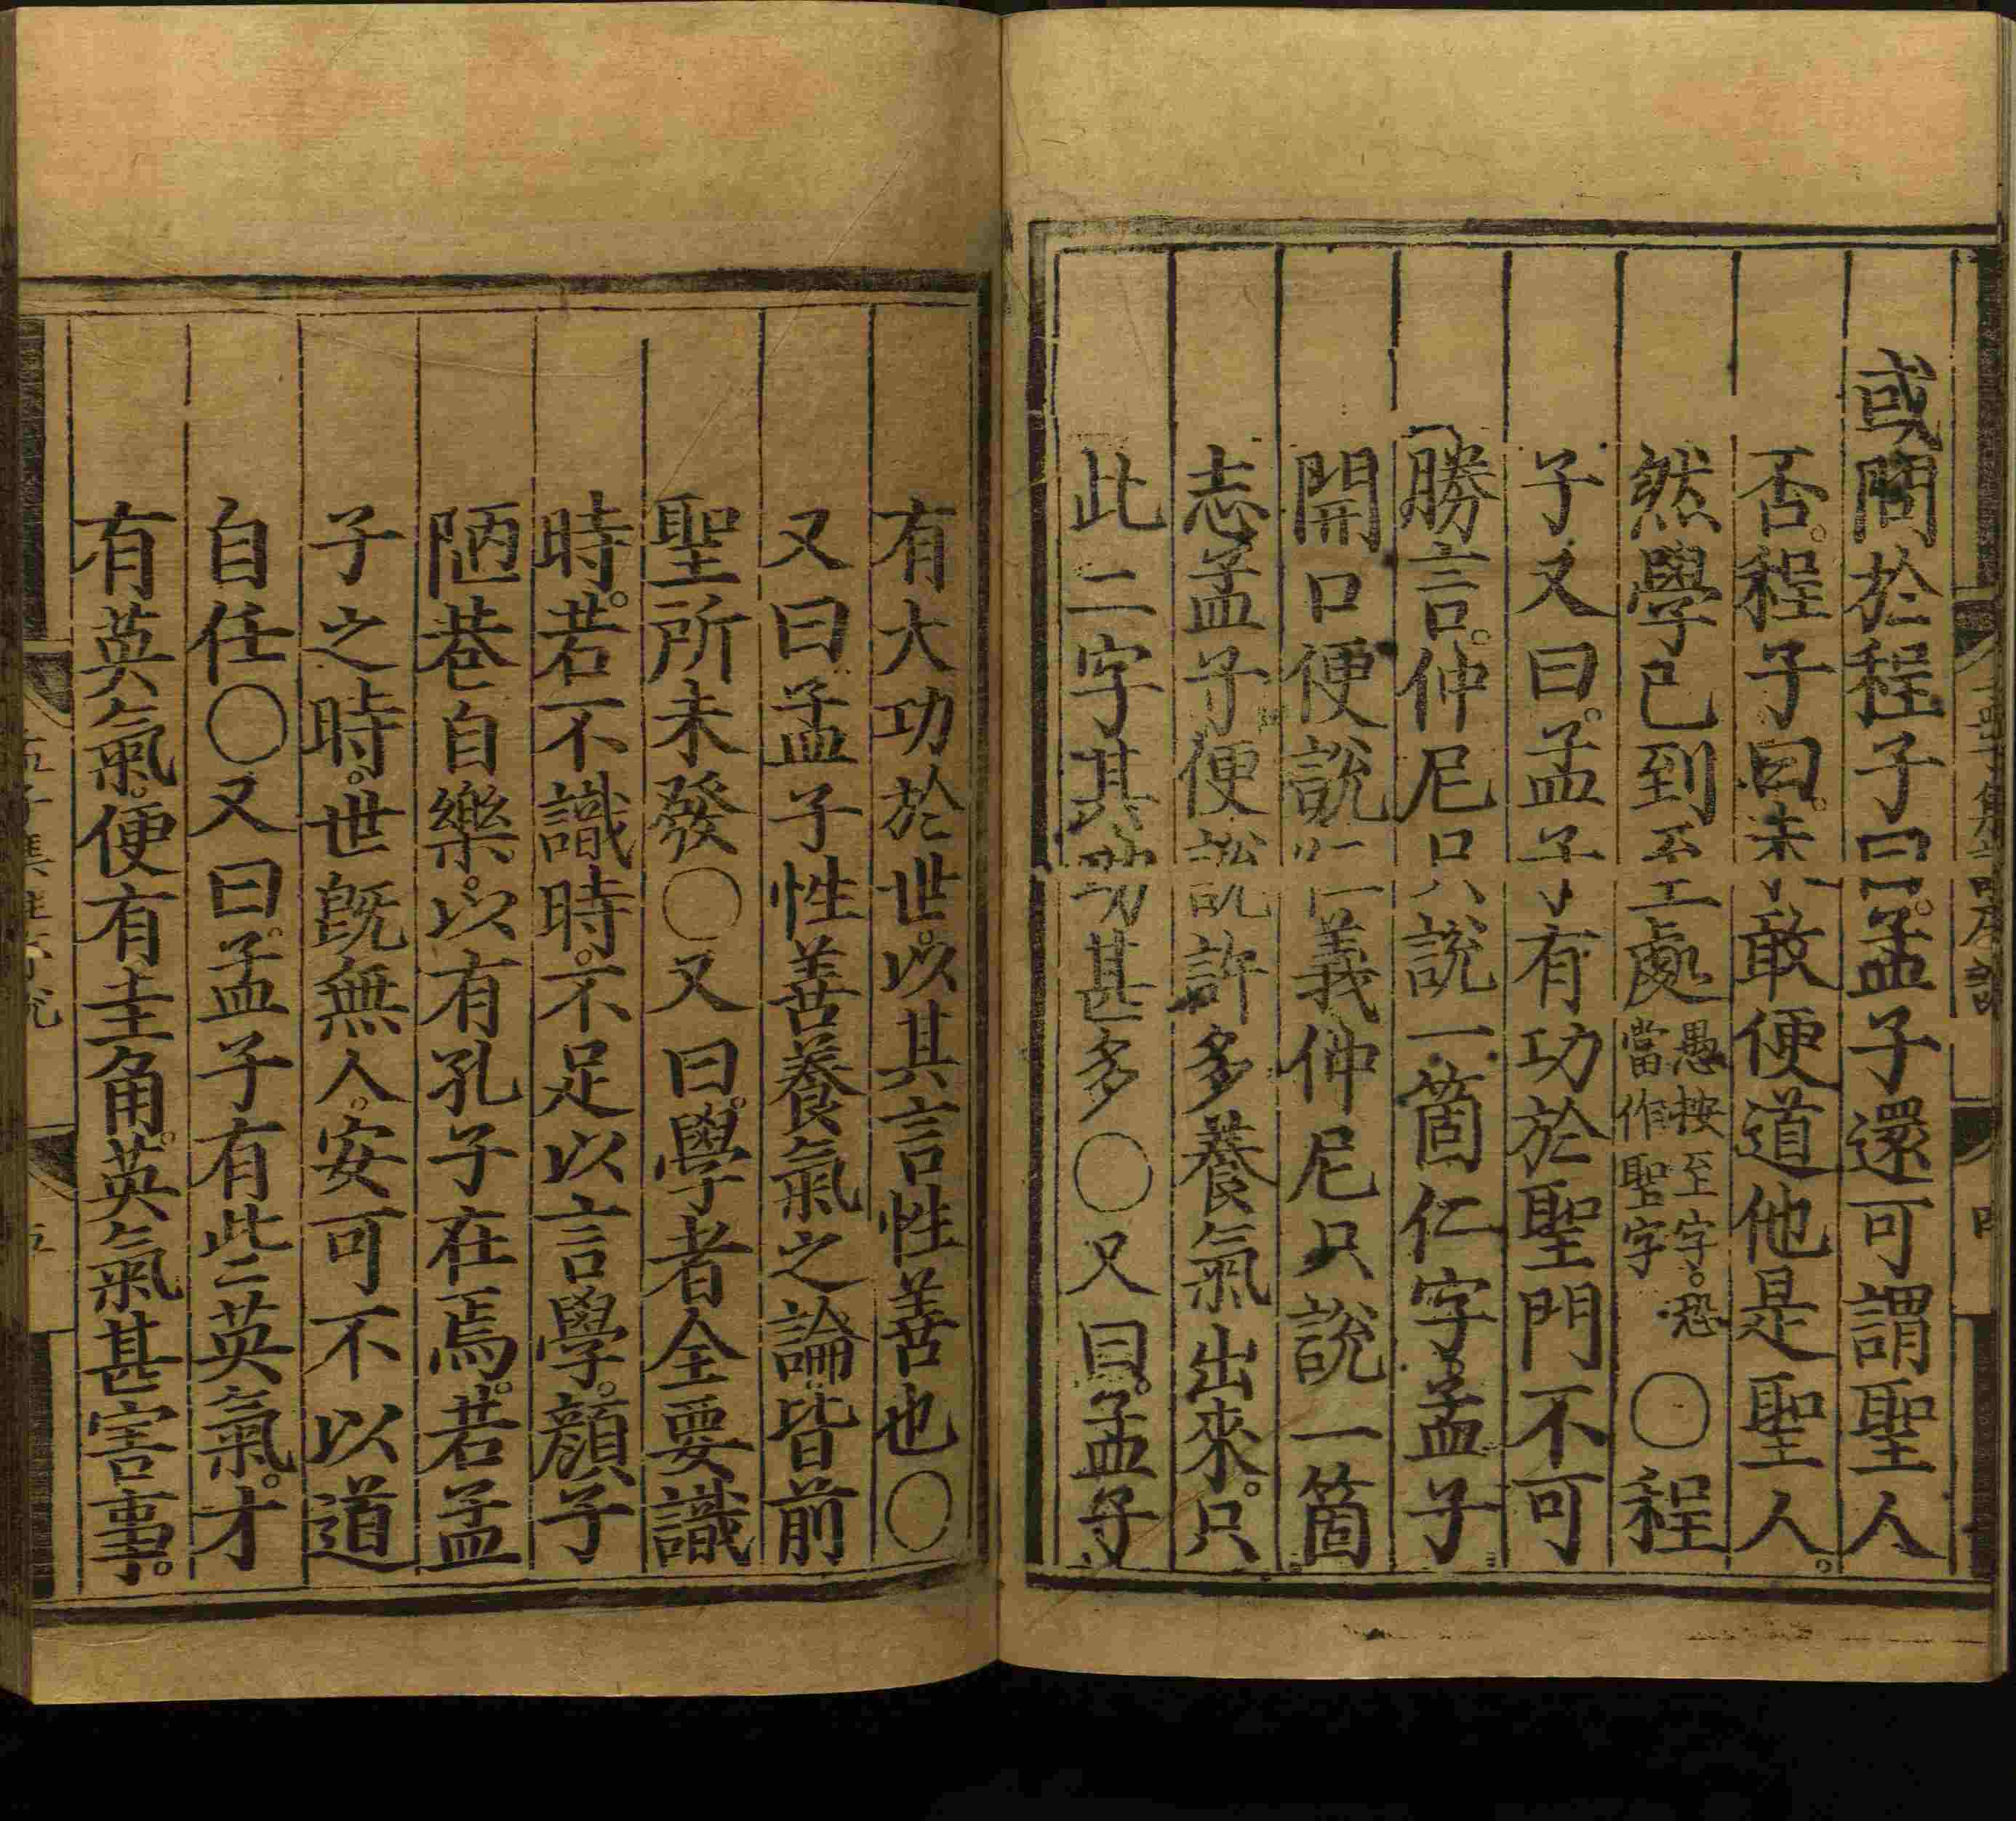 或問於程子曰。孟子還可謂聖人
否。程子曰。未敢便道他是聖人。
然學已到至處愚按至字。恐當作聖字〇程
子又曰。孟子有功於聖門不可
勝言。仲尼只說一箇仁字。孟子
開口便說仁義仲尼只說一箇
志孟子便說許多養氣出來。只
此二字其功甚多〇又曰。孟子
有大功於世。以其言性善也〇
又曰孟子性善養氣之論皆前
聖所未發〇又曰。學者全要識
時。若不識時。不足以言學。顏子
陋巷自樂。以有孔子在焉。若孟
子之時。世既無人。安可不以道
自任〇又曰。孟子有些英氣。才
有英氣。便有圭角。英氣甚害事。